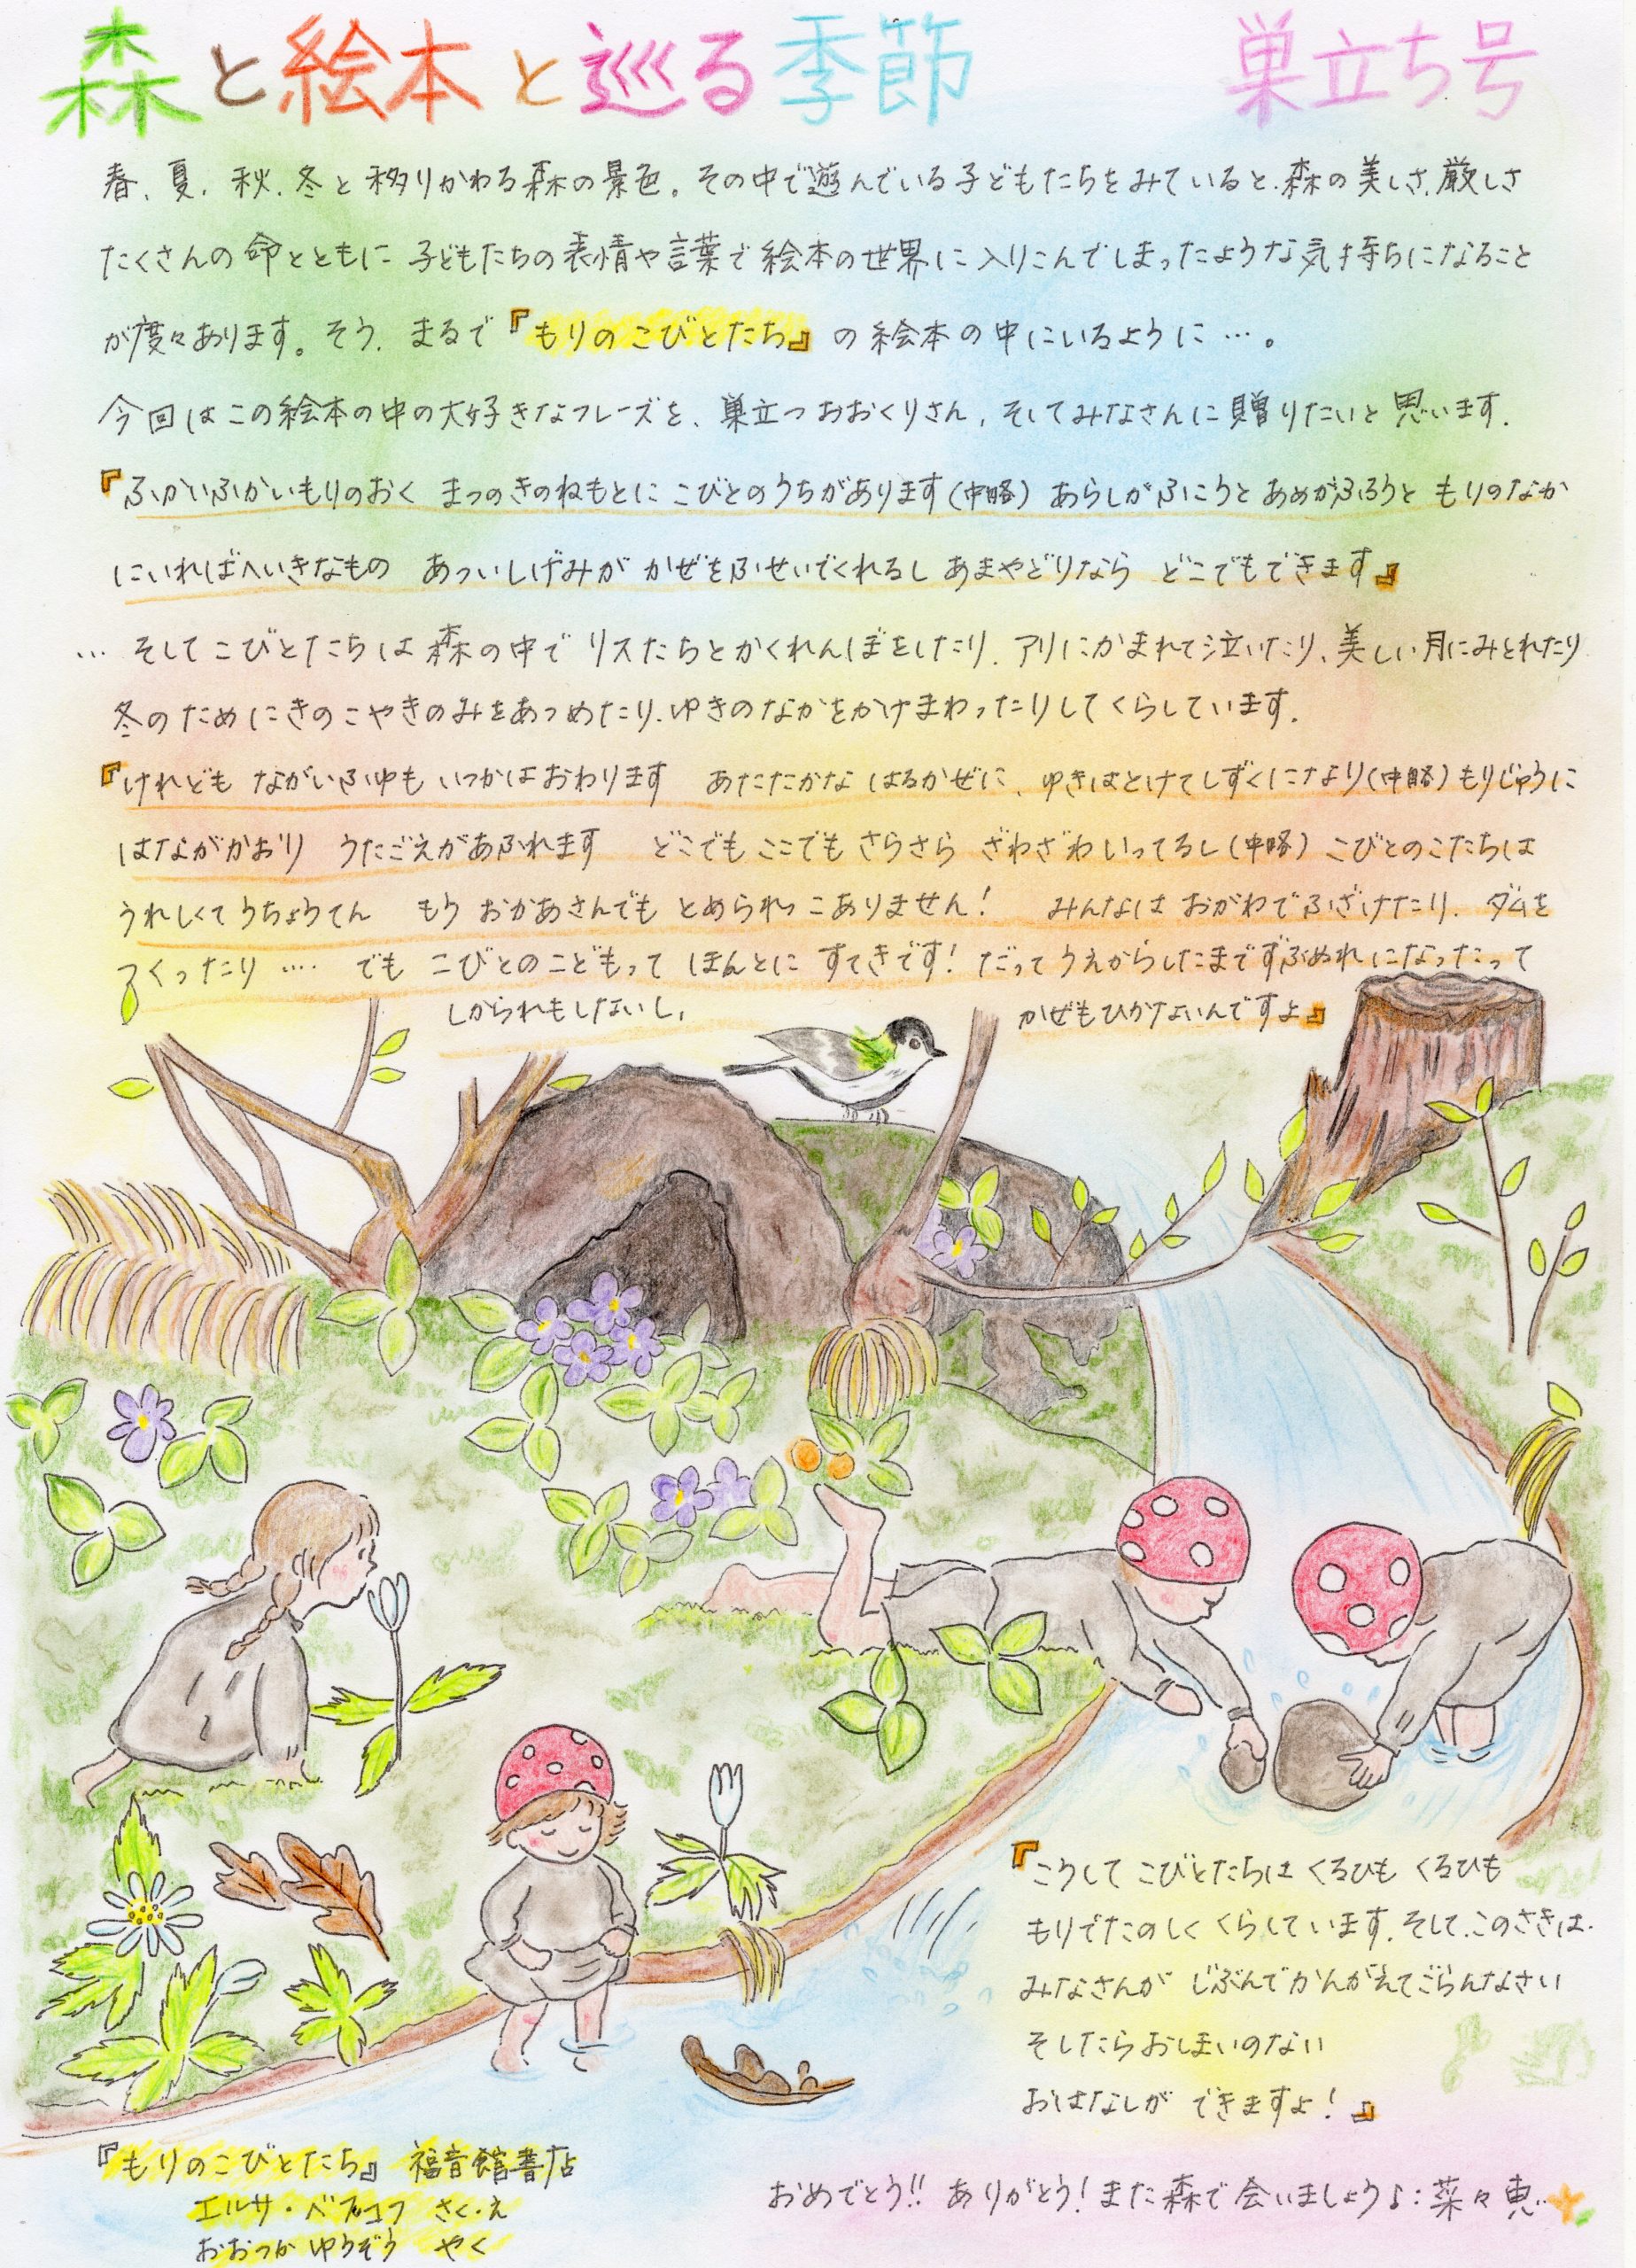 森と絵本と巡る季節　巣立ち号
春、夏、秋、冬と移りかわる森の景色。その中で遊んでいる子どもたちをみていると、森の美しさ、厳しさ
たくさんの命とともに 子どもたちの表情や言葉で絵本の世界に入りこんでしまったような気持ちになること
が度々あります。そう、まるで『もりのこびとたち』の絵本の中にいるように…。
今回はこの絵本の中の大好きなフレーズを、巣立つおおくりさん、そしてみなさんに贈りたいと思います。
『ふかいふかいもりのおく まつのきのねもとに こびとのうちがあります(中略) あらしがふこうと あめがふろうと もりのなか
にいればへいきなもの あついしげみが かぜをふせいでくれるし あまやどりなら どこでもできます』
… そしてこびとたちは森の中で リスたちとかくれんぼをしたり、アリにかまれて泣いたり、美しい月にみとれたり
冬のためにきのこやきのみをあつめたり、ゆきのなかをかけまわったりしてくらしています。
『けれども ながいふゆも いつかはおわります あたたかな はるかぜに、ゆきはとけてしずくになり(中略)もりじゅうに
はながかおり うたごえがあふれます どこでも ここでも さらさら ざわざわ いってるし(中略) こびとのこたちは
うれしくてうちょうてん もう おかあさんでも とめられっこありません! みんなは おがわで ふざけたり、ダムを
つくったり …. でも こびとのこどもって ほんとに すてきです! だって うえからしたまでずぶぬれになったって
しかられもしないし、 かぜもひかないんですよ』
『こうして こびとたちは くるひも くるひも
もりでたのしく くらしています。そして、このさきは、
みなさんが じぶんで かんがえてごらんなさい
そしたら おしまいのない
おはなしが できますよ!』
『もりのこびとたち』 福音館書店
エルサ・ベスコフ さく・え
おおつか ゆうぞう やく
おめでとう!! ありがとう! また森で会いましょう♪:菜々恵